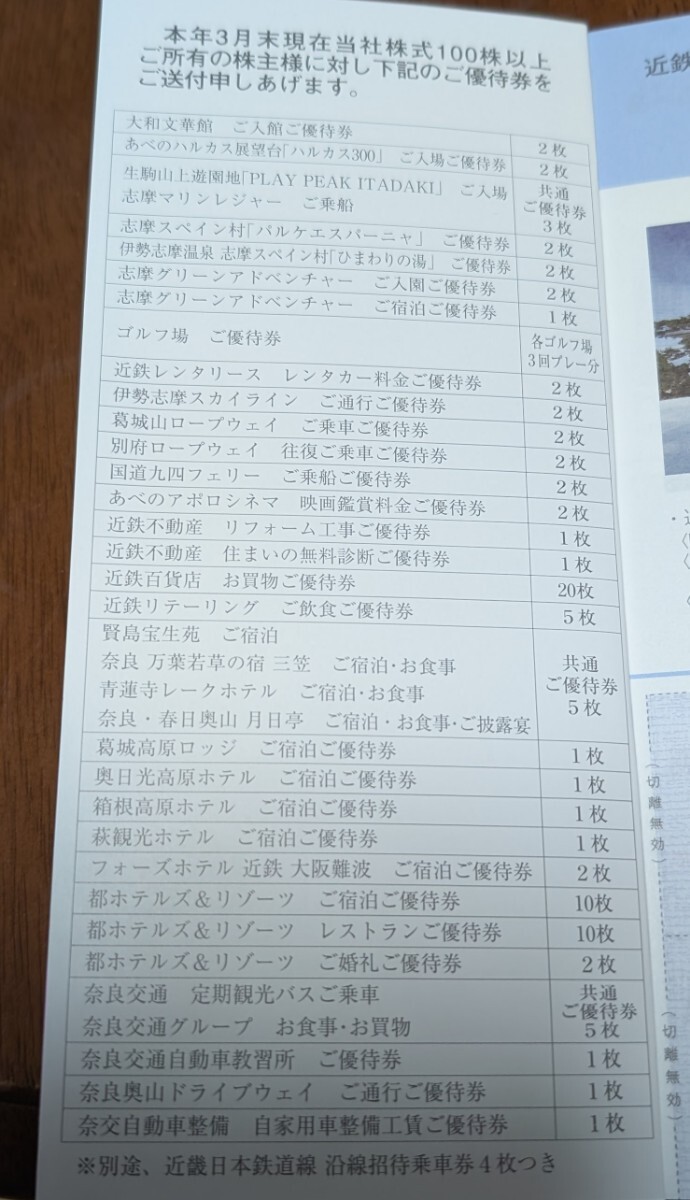 本年3月末現在当社株式100株以上
ご所有の株主様に対し下記のご優待券を
ご送付申しあげます。
大和文華館　ご入館ご優待券　2枚
あべのハルカス展望台「ハルカス300」　ご入場ご優待券　2枚
生駒山上遊園地「PLAY PEAK ITADAKI」　ご入場
志摩マリンレジャー　ご乗船
共通
ご優待券
3枚
志摩スペイン村「パルケエスパーニャ」　ご優待券　2枚
伊勢志摩温泉 志摩スペイン村「ひまわりの湯」　ご優待券　2枚
志摩グリーンアドベンチャー　ご入園ご優待券　2枚
志摩グリーンアドベンチャー　ご宿泊ご優待券　1枚
ゴルフ場　ご優待券
各ゴルフ場
3回プレー分
近鉄レンタリース　レンタカー料金ご優待券　2枚
伊勢志摩スカイライン　ご通行ご優待券　2枚
葛城山ロープウェイ　ご乗車ご優待券　2枚
別府ロープウェイ　往復ご乗車ご優待券　2枚
国道九四フェリー　ご乗船ご優待券　2枚
あべのアポロシネマ　映画鑑賞料金ご優待券　2枚
近鉄不動産　リフォーム工事ご優待券　1枚
近鉄不動産　住まいの無料診断ご優待券　1枚
近鉄百貨店　お買物ご優待券　20枚
近鉄リテーリング　ご飲食ご優待券　5枚
賢島宝生苑　ご宿泊
奈良 万葉若草の宿 三笠　ご宿泊･お食事
青蓮寺レークホテル　ご宿泊･お食事
奈良・春日奥山 月日亭　ご宿泊・お食事･ご披露宴
共通
ご優待券
5枚
葛城高原ロッジ　ご宿泊ご優待券　1枚
奥日光高原ホテル　ご宿泊ご優待券　1枚
箱根高原ホテル　ご宿泊ご優待券　1枚
萩観光ホテル　ご宿泊ご優待券　1枚
フォーズホテル 近鉄 大阪難波　ご宿泊ご優待券　2枚
都ホテルズ＆リゾーツ　ご宿泊ご優待券　10枚
都ホテルズ＆リゾーツ　レストランご優待券　10枚
都ホテルズ＆リゾーツ　ご婚礼ご優待券　2枚
奈良交通　定期観光バスご乗車
奈良交通グループ　お食事･お買物
共通
ご優待券
5枚
奈良交通自動車教習所　ご優待券　1枚
奈良奥山ドライブウェイ　ご通行ご優待券　1枚
奈交自動車整備　自家用車整備工賃ご優待券　1枚
※別途、近畿日本鉄道線 沿線招待乗車券4枚つき
近鉄
（切離無効）
（切離無効）